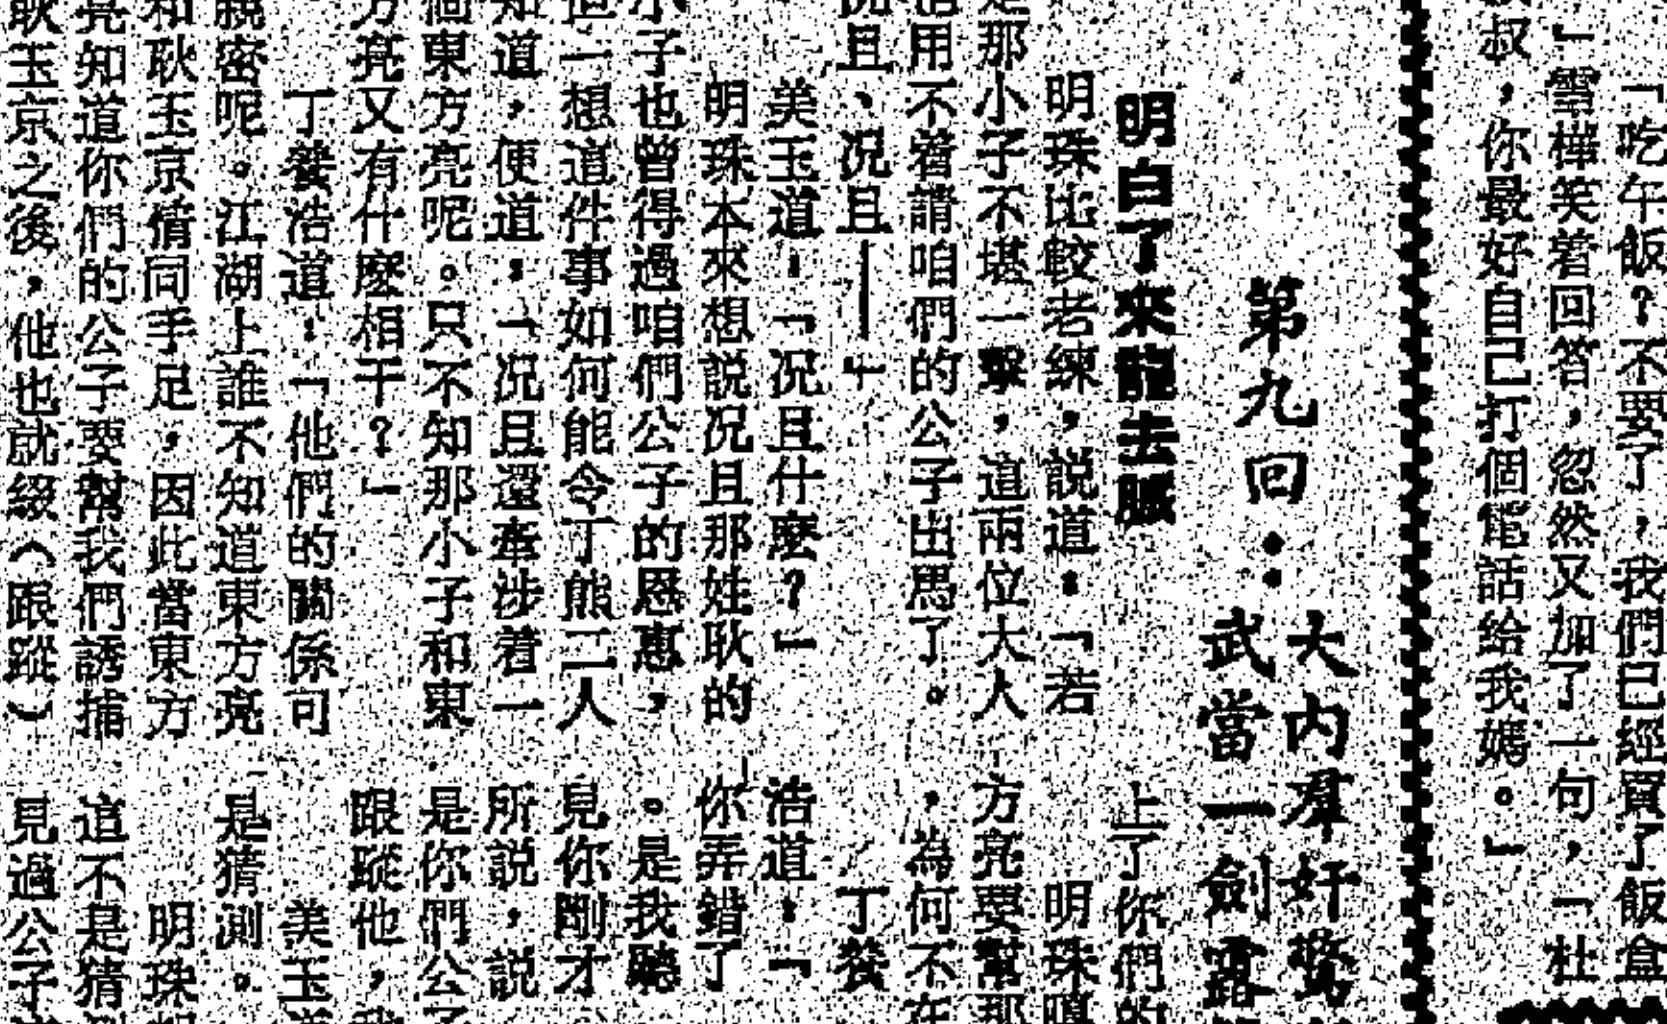 「吃午飯？不要了，我們已經買了飯盒
」雪樺笑着回答，忽然又加了一句，「杜
叔，你最好自己打個電話給我媽。」
第九回：
大內羣奸驚
武當一劍露
明白了來龍去脈
明珠比較老練，説道：「若
那小子不堪一擊，這兩位大人
用不着請咱們的公子出馬了。
且、况且——」
美玉道：「况且什麼？」
明珠本來想説况且那姓耿的
小子也曾得過咱們公子的恩惠，
但一想這件事如何能令丁熊二人
知道，便道：「况且還牽涉着一
個東方亮呢。只不知那小子和東
方亮又有什麼相干？」
丁養浩道：「他們的關係可
親密呢。江湖上誰不知道東方亮
和耿玉京情同手足，因此當東方
亮知道你們的公子要幫我們誘捕
耿玉京之後，他也就綴（跟蹤）
上了你們的
明珠
方亮要幫那
，為何不在
丁養
浩道：「
你弄錯了
。是我聽
見你剛才
所説，説
是你們公子
跟蹤他，
美玉
是猜測。
明珠
這不是猜
見過公子